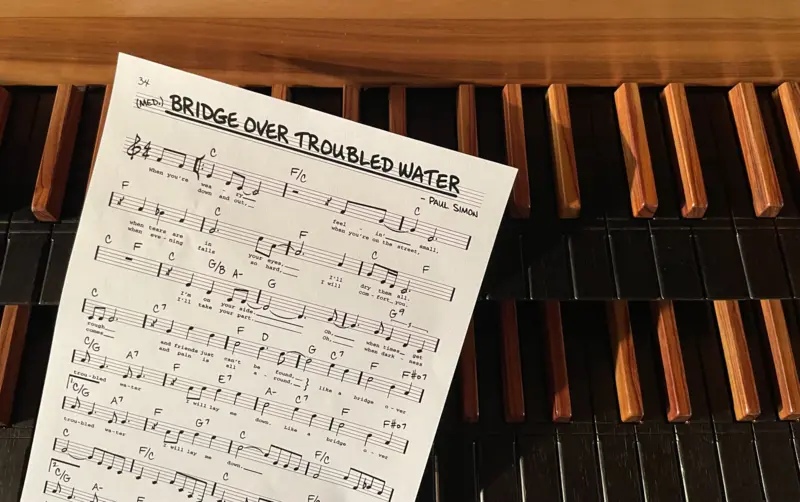 34
(MED.) BRIDGE OVER TROUBLED WATER
- PAUL SIMON
C F/C C
When you're wea - ry, feel - in' small,
down and out, when you're on the street,
F C F C F
when tears are in your eyes, I'll dry them all.
when eve - ning falls so hard, I will com - fort you.
C F C G/B A- G
I'm on your side, Oh, when times get
I'll take your part, Oh, when dark - ness
G9
C C7 F D G C7 F F#o7
rough and friends just can't be found, like a bridge o - ver
comes and pain is all a - round,
C/G A7 F E7 A- C7 F F#o7
trou - bled wa - ter I will lay me down. Like a bridge o - ver
1. C/G A7 F G7 C
trou - bled wa - ter I will lay me down.
C F/C C F/C
2. C/G A-